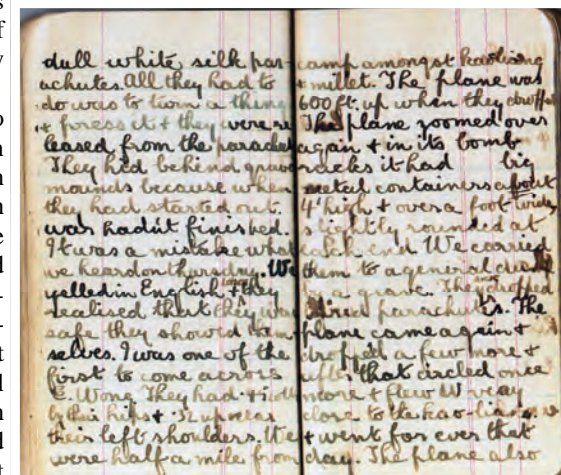 dull white silk par-
achutes. All they had to
do was to turn a thing
+ press it + they were re
leased from the parachute
They hid behind grave
mounds because when
they had started out.
war hadn't finished.
It was a mistake what
we heard on thursday. We
yelled in English + they
realised that they was
safe they showed them-
selves. I was one of the
first to come across
Wong. They had
by their hips + .32 up near
their left shoulders. We
were half a mile from
camp amongst kaoliang
+ millet. The plane was
600 ft. up when they dropped
The plane zoomed over
again + in its bomb
racks it had big
metal containers about
4' high + over a foot wide,
slightly rounded at
each end We carried
them to a general
in a grave. They dropped
parachutes. The
plane came again +
dropped a few more +
after that circled once
more + flew V very
close to the kao-liang
+ went for ever that
day. The plane also